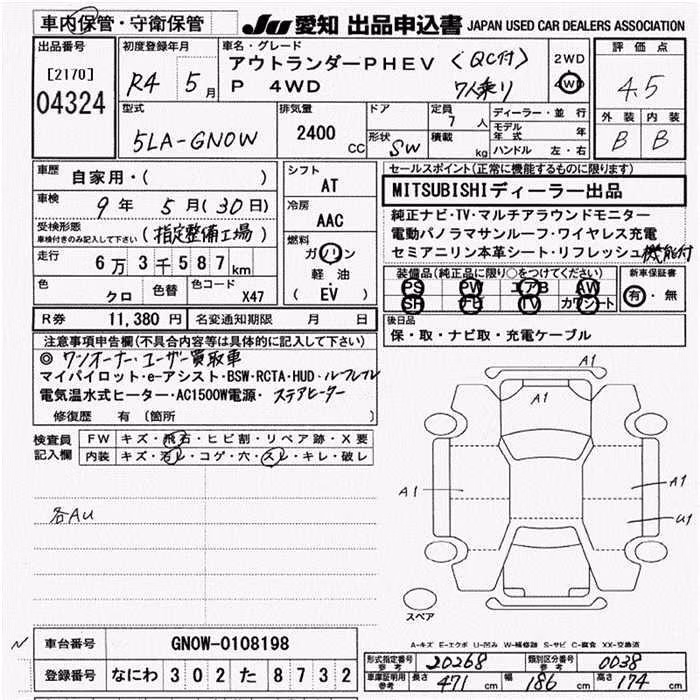 車内保管・守衛保管
JU 愛知 出品申込書 JAPAN USED CAR DEALERS ASSOCIATION
出品番号
[2170]
04324
初度登録年月
R4 5月
車名・グレード
アウトランダーPHEV (QC付)
P 4WD 7人乗り
2WD
4WD
評価点
4.5
外装 内装
B B
型式
5LA-GN0W
排気量
2400 CC
ドア
形状 SW
定員
7 人
積載 kg
ディーラー・並行
モデル年式 年
ハンドル 左・右
車歴
自家用・( )
車検
9年 5月(30日)
受検形態
車検付きのみ記入して下さい
(指定整備工場)
走行
6万3千587km
色
クロ
色替
色コード
X47
シフト
AT
冷房
AAC
燃料
ガソリン
軽油
(EV)
R券 11,380円
名変通知期限 月 日
セールスポイント(正常に機能するものに限ります)
MITSUBISHIディーラー出品
純正ナビ・TV・マルチアラウンドモニター
電動パノラマサンルーフ・ワイヤレス充電
セミアニリン本革シート・リフレッシュ機能付
装備品(純正品に限り○をつけてください)
PS PW エアB AW
SR ナビ TV カワシート
新車保証書
有・無
後日品
保・取・ナビ取・充電ケーブル
注意事項申告欄(不具合内容等は具体的に記入して下さい)
◎ワンオーナー・ユーザー買取車
マイパイロット・e-アシスト・BSW・RCTA・HUD・ルーフレフレ
電気温水式ヒーター・AC1500W電源・ステアヒーター
修復歴 有 〔箇所
検査員記入欄
FW キズ・飛石・ヒビ割・リペア跡・X要
内装 キズ・汚レ・コゲ・穴・スレ・キレ・破レ
各AU
A1
A1
A1
A1
U1
スペア
A-キズ E-エクボ U-凹み W-補修跡 S-サビ C-腐食 XX-交換済
車台番号 GN0W-0108198
登録番号 なにわ 302 た 8732
形式指定番号 参考 20268
類別区分番号 参考 0038
車庫証明用 参考 長さ 471 cm 幅 186 cm 高さ 174 cm